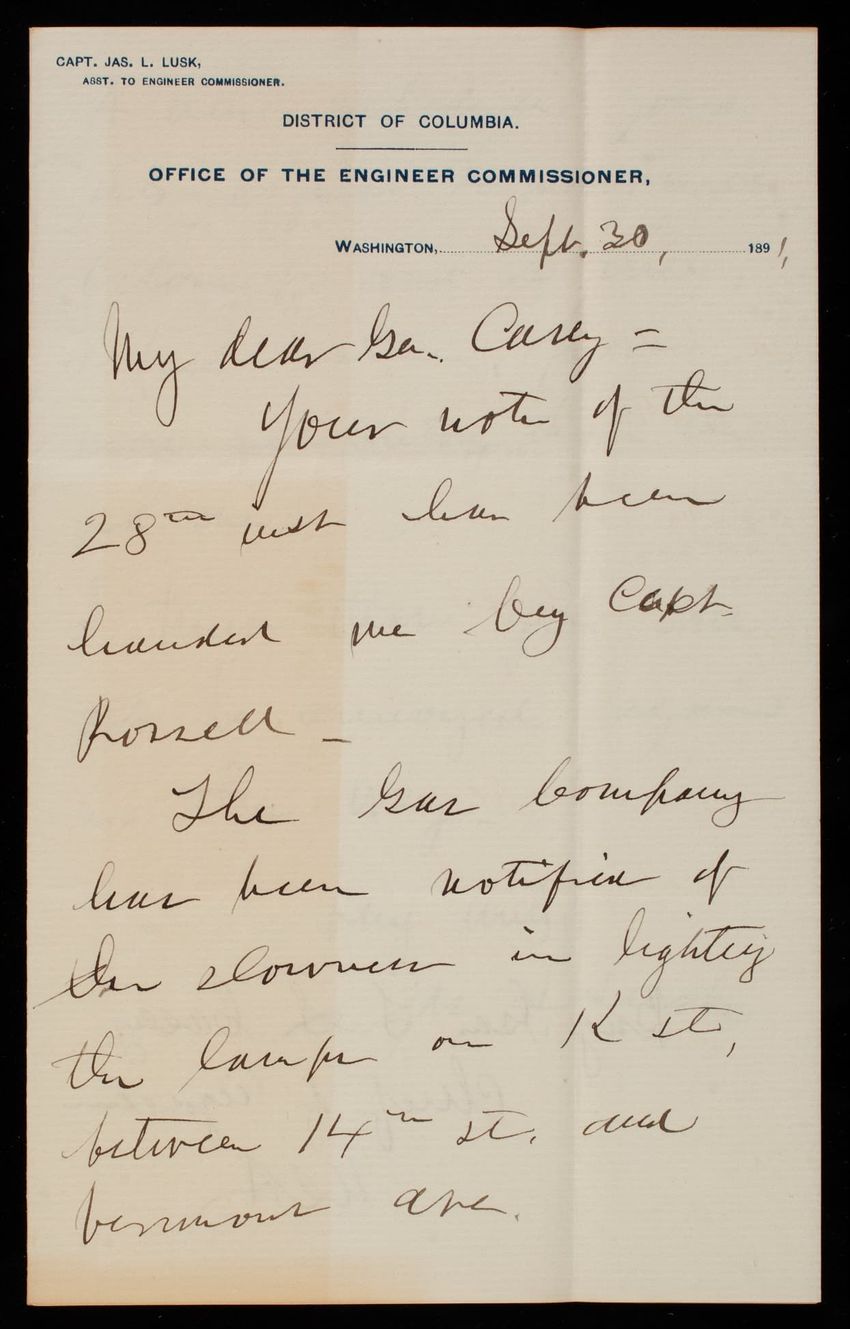 CAPT. JAS. L. LUSK,
ASST. TO ENGINEER COMMISSIONER.
DISTRICT OF COLUMBIA.
OFFICE OF THE ENGINEER COMMISSIONER,
WASHINGTON, Sept. 30, 1891,
My dear Gen. Casey =
Your note of the
28th inst has been
handed me by Capt.
Rossell _
The Gas Company
has been notified of
the slowness in lighting
the lamps on K st,
between 14th st. and
Vermont ave.